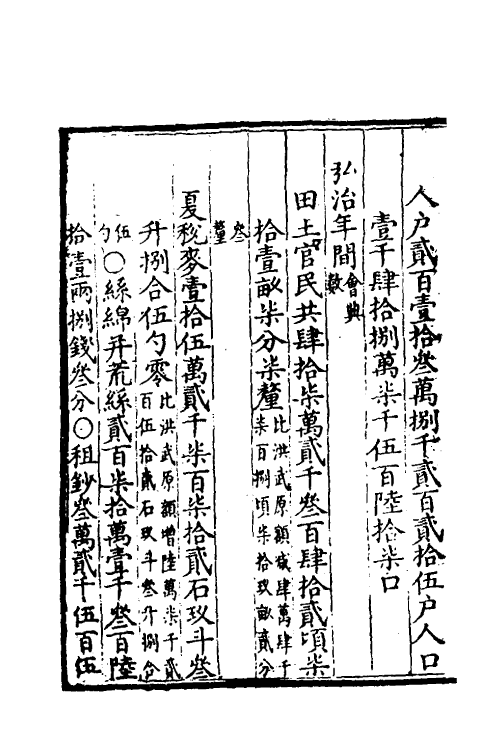 人户貳百壹拾叁萬捌千貳百貳拾伍户人口
壹千肆拾捌萬柒千伍百陸拾柒口
弘治年間會典數
田土官民共肆拾柒萬貳千叁百肆拾貳頃柒
拾壹畝柒分柒釐比洪武原額减肆萬肆千柒百捌頃柒拾玖畝貳分
叁釐
夏稅麥壹拾伍萬貳千柒百柒拾貳石玖斗叁
升捌合伍勺零比洪武原額增陸萬柒千貳百伍拾貳石玖斗叁升捌合
伍勺○絲綿并荒絲貳百柒拾萬壹千叁百陸
拾壹兩捌錢叁分○租鈔叁萬貳千伍百伍